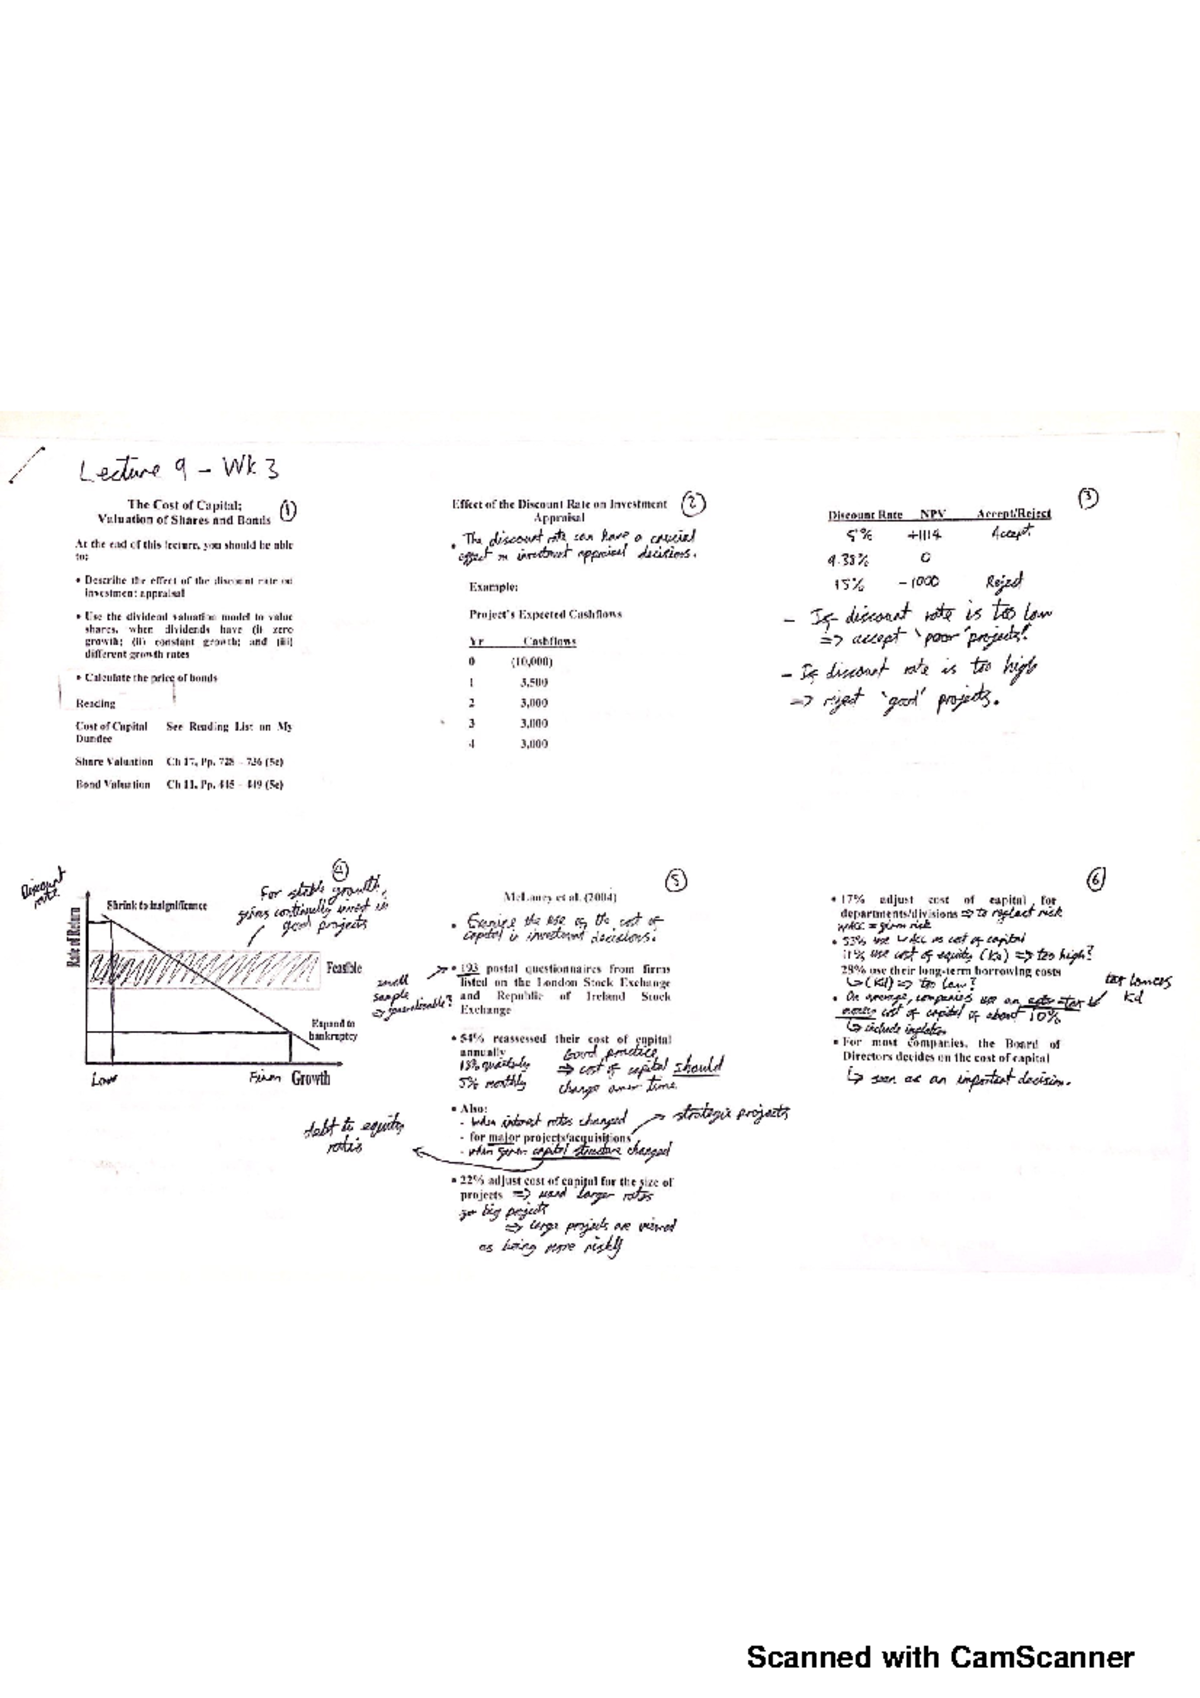 Lecture 9 - Wk 3
The Cost of Capital;
Valuation of Shares and Bonds
1
At the end of this lecture, you should be able
to:
• Describe the effect of the discount rate on
investment appraisal
• Use the dividend valuation model to value
shares, when dividends have (i) zero
growth; (ii) constant growth; and (iii)
different growth rates
• Calculate the price of bonds
Reading
Cost of Capital See Reading List on My
Dundee
Share Valuation Ch 17, Pp. 728 - 736 (5e)
Bond Valuation Ch 11, Pp. 445 - 449 (5e)
Effect of the Discount Rate on Investment
Appraisal
2
• The discount rate can have a crucial
effect on investment appraisal decisions.
Example:
Project's Expected Cashflows
Yr Cashflows
0 (10,000)
1 3,500
2 3,000
3 3,000
4 3,000
3
Discount Rate NPV Accept/Reject
5% +1114 Accept
9.38% 0
15% -1000 Reject
- If discount rate is too low
=> accept 'poor' projects!
- If discount rate is too high
=> reject 'good' projects.
4
Discount
rate
For stable growth,
firms continually invest in
good projects
Shrink to insignificance
Rate of Return
Feasible
Expand to
bankruptcy
Low
Firm Growth
5
McLaney et al. (2004)
• Examine the use of the cost of
capital in investment decisions.
• 193 postal questionnaires from firms
listed on the London Stock Exchange
and Republic of Ireland Stock
Exchange
small
sample
=> generalisable?
• 54% reassessed their cost of capital
annually Good practice
13% quarterly => cost of capital should
5% monthly change over time
• Also:
- When interest rates changed
- for major projects/acquisitions
strategic projects
- when firm capital structure changed
debt to equity
ratio
• 22% adjust cost of capital for the size of
projects => used larger rates
for big projects
=> large projects are viewed
as being more risky
6
• 17% adjust cost of capital for
departments/divisions => to reflect risk
WACC = firm risk
• 53% use WACC as cost of capital
11% use cost of equity (Ke) => too high?
28% use their long-term borrowing costs
(Kd) => too low?
tax lowers
Kd
• On average, companies use an after-tax
cost of capital of about 10%
include inflation
• For most companies, the Board of
Directors decides on the cost of capital
seen as an important decision.
Scanned with CamScanner